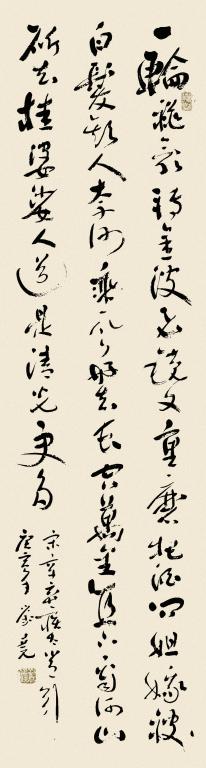 一輪秋影轉金波飛鏡又重磨把酒問姮娥被
白髮欺人奈何乘風好去長空萬里直下看河山
斫去桂婆娑人道是清光更多
宋辛棄疾太常引